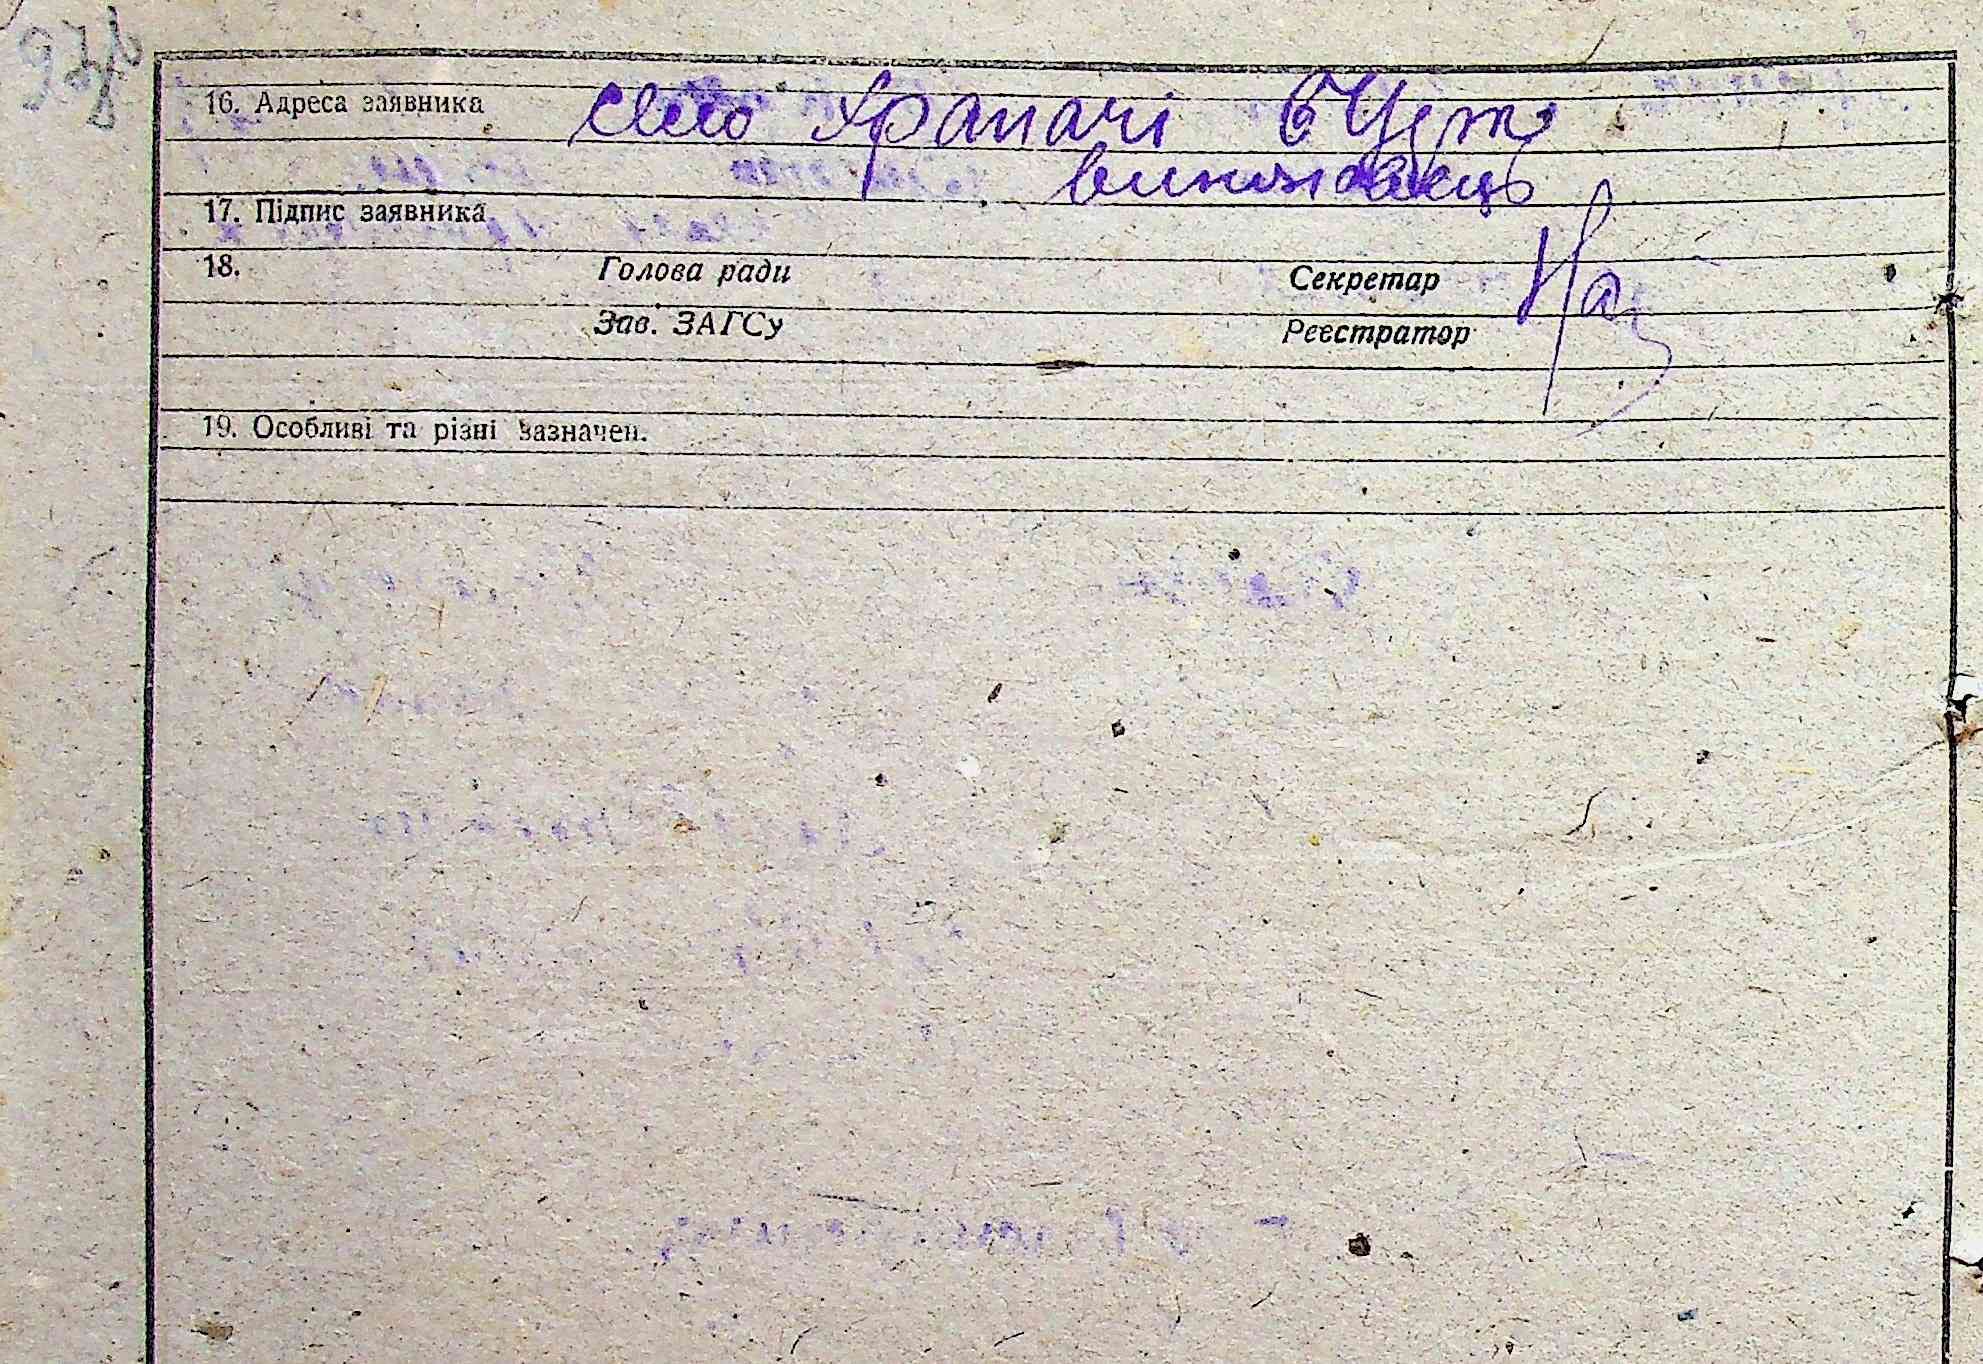 16. Адреса заявника село Храпачі
виконавець
17. Підпис заявника
18. Голова ради Секретар
Зав. ЗАГСу Реєстратор
19. Особливі та різні зазначен.